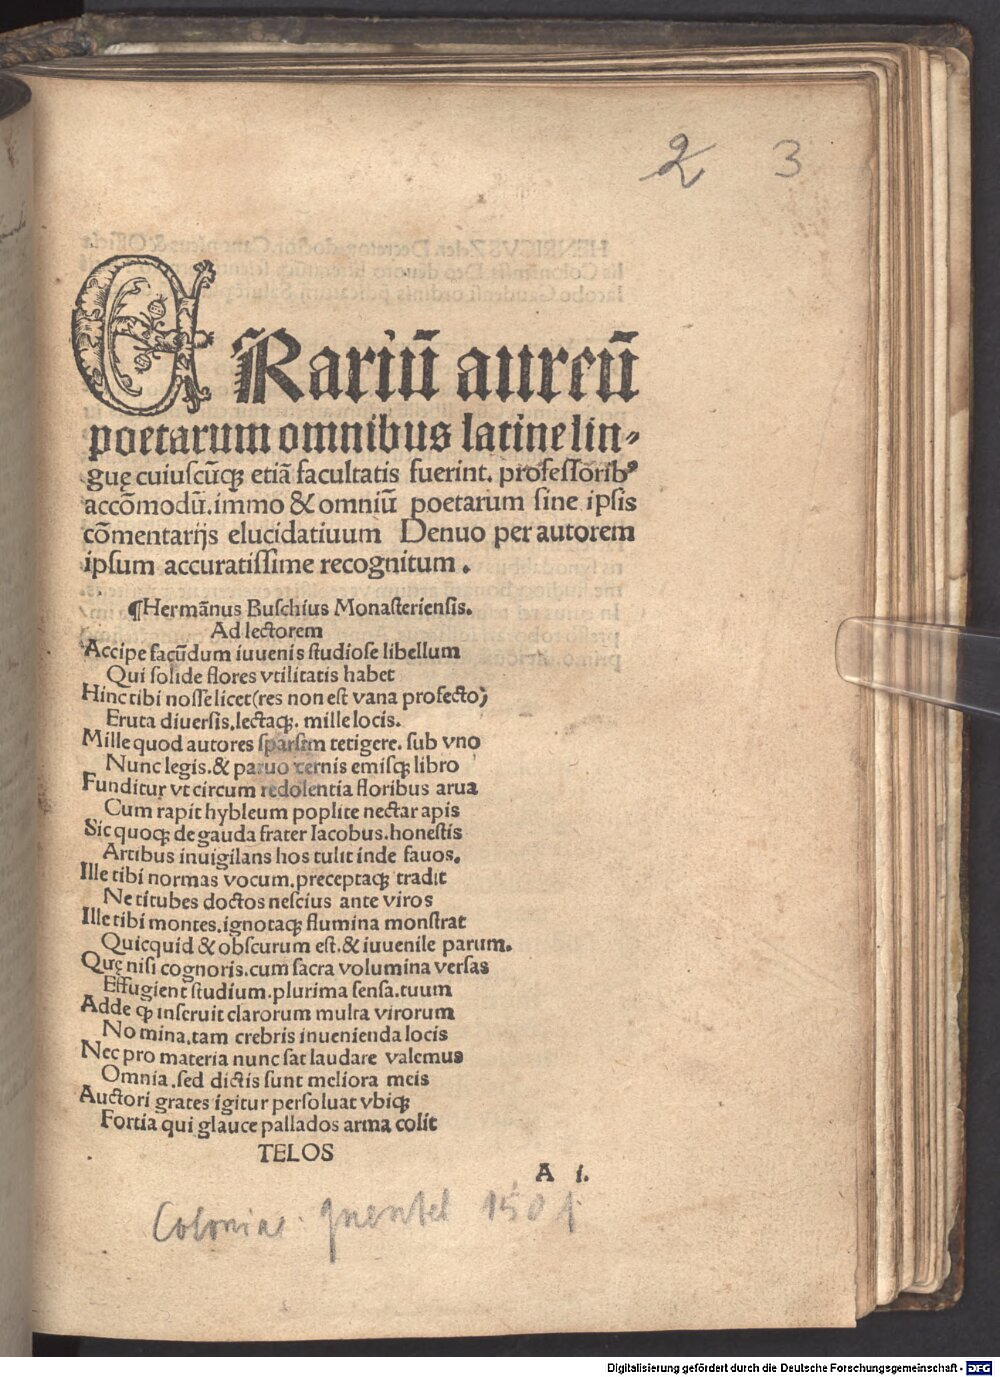 2 3
ERariū aureū
poetarum omnibus latine lin⸗
guę cuiuscūqꝫ etiā facultatis fuerint. professoribꝰ
accōmodū. immo & omniū poetarum sine ipsis
cōmentarijs elucidatiuum Denuo per autorem
ipsum accuratissime recognitum.
¶Hermānus Buschius Monasteriensis.
Ad lectorem
Accipe facūdum iuuenis studiose libellum
Qui solide flores vtilitatis habet
Hinc tibi nosse licet (res non est vana profecto)
Eruta diuersis. lectaqꝫ. mille locis.
Mille quod autores sparsim tetigere. sub vno
Nunc legis. & paruo ternis emisqꝫ libro
Funditur vt circum redolentia floribus arua
Cum rapit hybleum poplite nectar apis
Sic quoqꝫ de gauda frater Iacobus. honestis
Artibus inuigilans hos tulit inde fauos.
Ille tibi normas vocum. preceptaqꝫ tradit
Ne titubes doctos nescius ante viros
Ille tibi montes. ignotaqꝫ flumina monstrat
Quicquid & obscurum est. & iuuenile parum.
Quę nisi cognoris. cum sacra volumina versas
Effugient studium. plurima sensa. tuum
Adde qꝫ inseruit clarorum multa virorum
No mina. tam crebris inuenienda locis
Nec pro materia nunc sat laudare valemus
Omnia. sed dictis sunt meliora meis
Auctori grates igitur persoluat vbiqꝫ
Fortia qui glauce pallados arma colit
TELOS
A i.
Coloniae. Quentel 1501
Digitalisierung gefördert durch die Deutsche Forschungsgemeinschaft - DFG